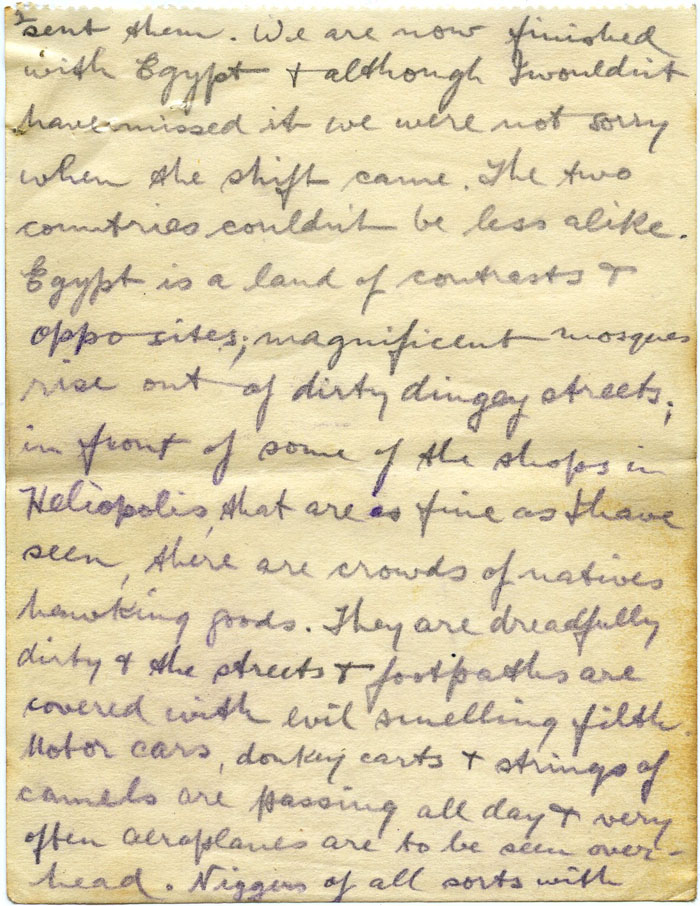 2
sent them. We are now finished
with Egypt & although I wouldn't
have missed it we were not sorry
when the shift came. The two
countries couldn't be less alike.
Egypt is a land of contrests &
opposites; magnificent mosques
rise out of dirty dingey streets;
in front of some of the shops in
Heliopolis, that are as fine as I have
seen, there are crowds of natives
hawking goods. They are dreadfully
dirty & the streets & footpaths are
covered with evil smelling filth.
Motor cars, donkey carts & strings of
camels are passing all day & very
often aeroplanes are to be seen over-
head. Niggers of all sorts with